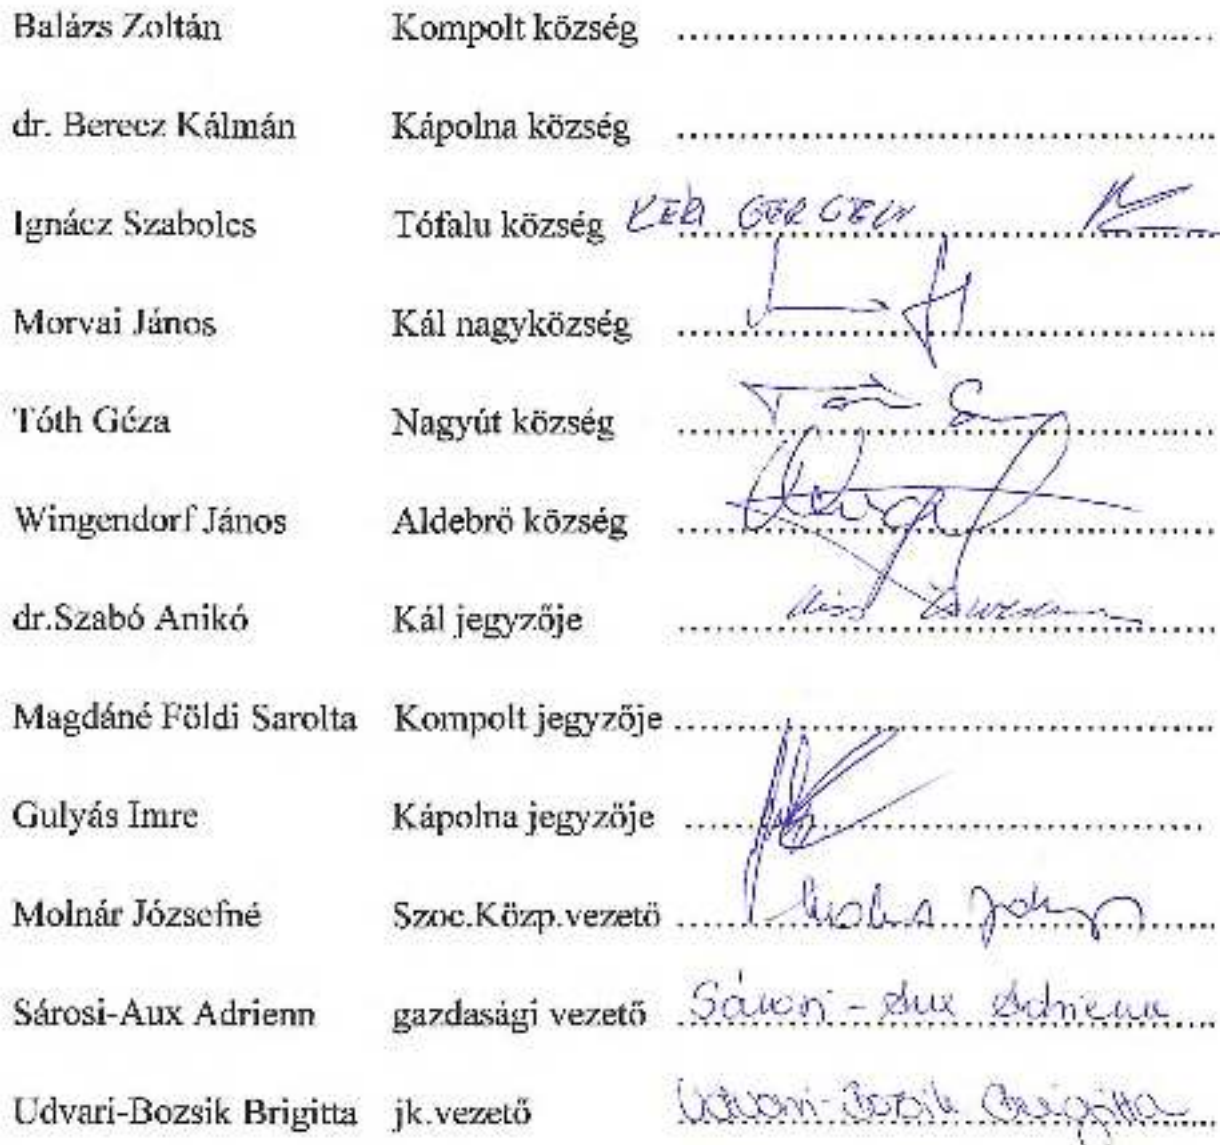 Balázs Zoltán Kompolt község ........................................
dr. Berecz Kálmán Kápolna község ........................................
Ignácz Szabolcs Tófalu község ........................................
Morvai János Kál nagyközség ........................................
Tóth Géza Nagyút község ........................................
Wingendorf János Aldebrő község ........................................
dr.Szabó Anikó Kál jegyzője ........................................
Magdáné Földi Sarolta Kompolt jegyzője ........................................
Gulyás Imre Kápolna jegyzője ........................................
Molnár Józsefné Szoc.Közp.vezető ........................................
Sárosi-Aux Adrienn gazdasági vezető Sárosi-Aux Adrienn
Udvari-Bozsik Brigitta jk.vezető Udvari-Bozsik Brigitta